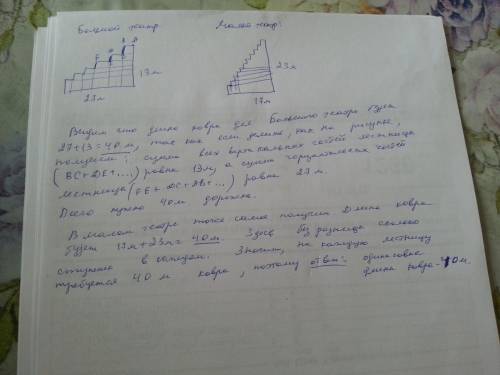 Большой театр
Малый театр:
13м
27м
23м
17м
Видим что длина ковра для Большого театра будет
27+13=40м, так как если делить, как на рисунке,
получаем: сумма всех вертикальных сторон лестницы
(BC+DE+...) равна 13м, а сумма горизонтальных частей
лестницы (FE+DC+AB+...) равна 27 м.
Всего нужно 40м дорожки.
В малом театре тоже самое получим. Длина ковра
будет 17м+23м=40м. Здесь без разницы сколько
ступенек в каждом. Значит, на каждую лестницу
требуется 40 м ковра, поэтому ответ: одинаковые
длина ковра-40м.